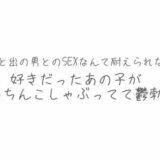 と出の男とのSEXなんて耐えられな
好きだったあの子が
ちんこしゃぶってて鬱勃